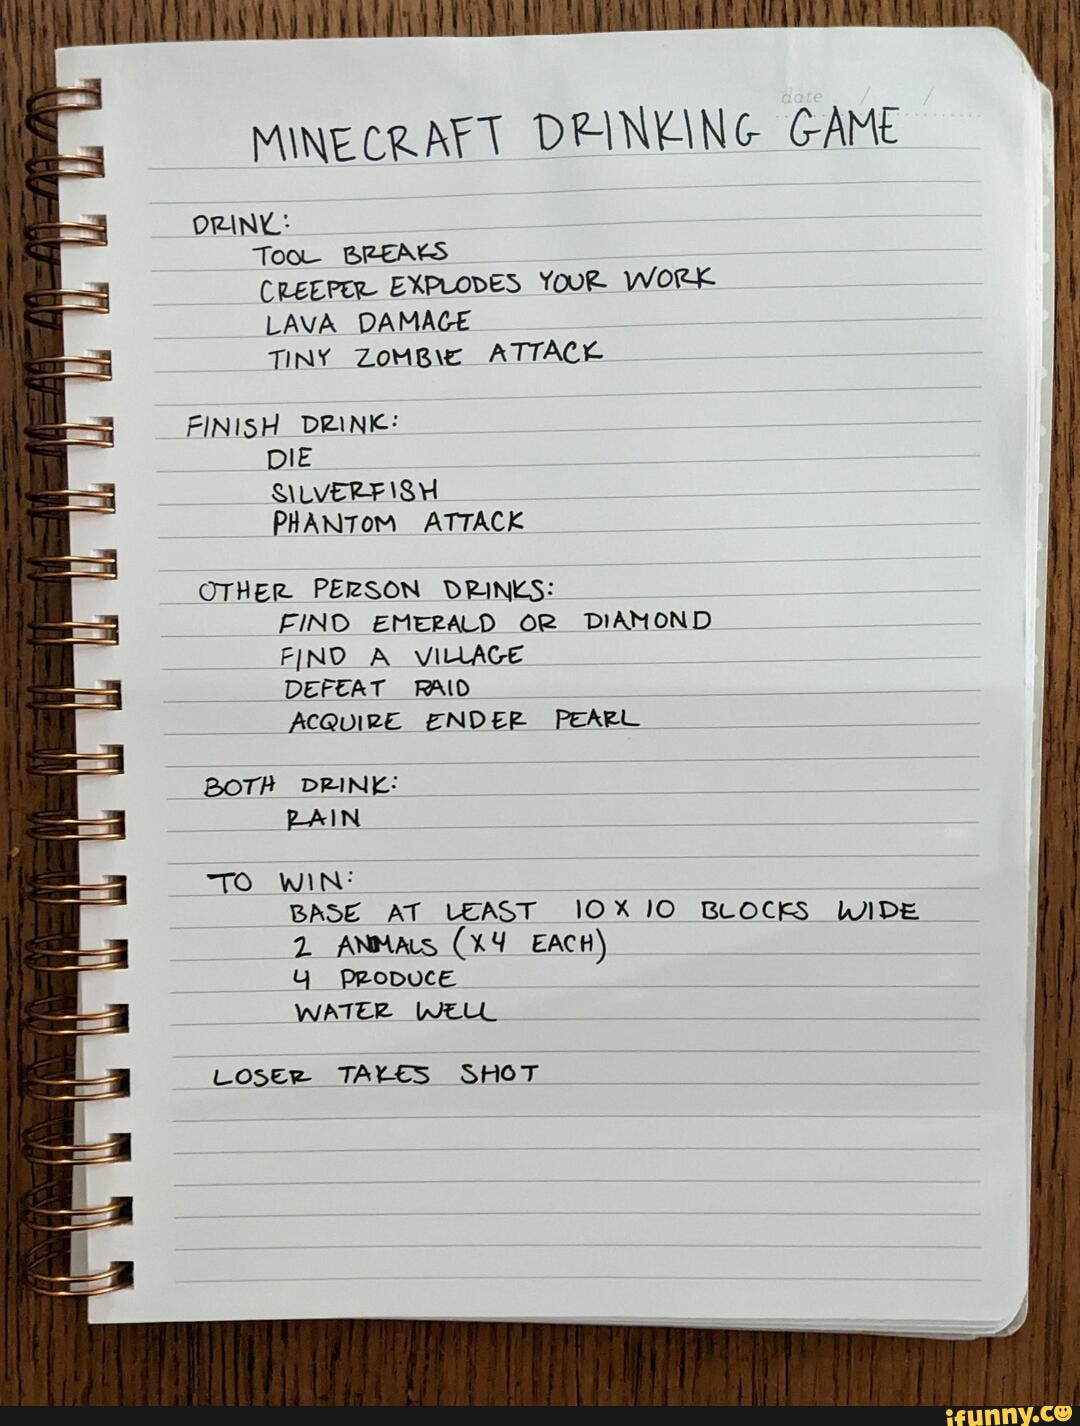 date / /
MINECRAFT DRINKING GAME
DRINK:
TOOL BREAKS
CREEPER EXPLODES YOUR WORK
LAVA DAMAGE
TINY ZOMBIE ATTACK
FINISH DRINK:
DIE
SILVERFISH
PHANTOM ATTACK
OTHER PERSON DRINKS:
FIND EMERALD OR DIAMOND
FIND A VILLAGE
DEFEAT RAID
ACQUIRE ENDER PEARL
BOTH DRINK:
RAIN
TO WIN:
BASE AT LEAST 10 X 10 BLOCKS WIDE
2 ANIMALS (X4 EACH)
4 PRODUCE
WATER WELL
LOSER TAKES SHOT
ifunny.co